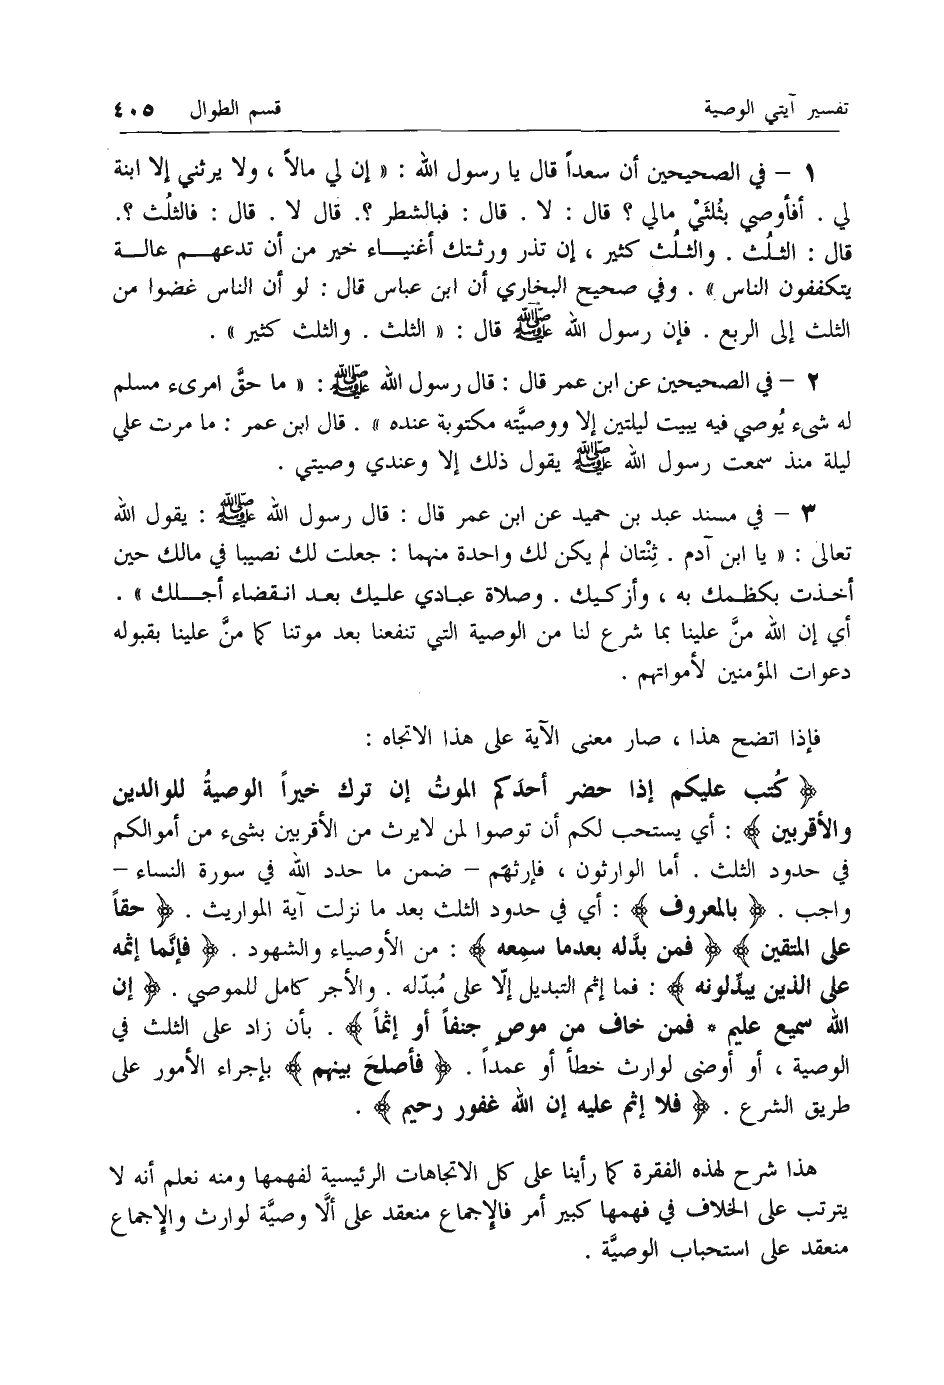 تفسير آيتي الوصية قسم الطوال ٤٠٥
١ – في الصحيحين أن سعداً قال يا رسول الله : « إن لي مالاً ، ولا يرثني إلا ابنة
لي . أفأوصي بثُلثَيْ مالي ؟ قال : لا . قال : فبالشطر ؟. قال لا . قال : فالثلُث ؟.
قال : الثلُث . والثلُث كثير ، إن تذر ورثتك أغنياء خير من أن تدعهم عالة
يتكففون الناس » . وفي صحيح البخاري أن ابن عباس قال : لو أن الناس غضوا من
الثلث إلى الربع . فإن رسول الله ﷺ قال : « الثلث . والثلث كثير » .
٢ – في الصحيحين عن ابن عمر قال : قال رسول الله ﷺ : « ما حقَّ امرىء مسلم
له شىء يُوصي فيه يبيت ليلتين إلا ووصيَّته مكتوبة عنده » . قال ابن عمر : ما مرت علي
ليلة منذ سمعت رسول الله ﷺ يقول ذلك إلا وعندي وصيتي .
٣ – في مسند عبد بن حميد عن ابن عمر قال : قال رسول الله ﷺ : يقول الله
تعالى : « يا ابن آدم . ثِنْتان لم يكن لك واحدة منهما : جعلت لك نصيبا في مالك حين
أخذت بكظمك به ، وأزكيك . وصلاة عبادي عليك بعد انقضاء أجلك » .
أي إن الله منَّ علينا بما شرع لنا من الوصية التي تنفعنا بعد موتنا كما منَّ علينا بقبوله
دعوات المؤمنين لأمواتهم .
فإذا اتضح هذا ، صار معنى الآية على هذا الاتجاه :
﴿ كُتب عليكم إذا حضر أحدَكم الموتُ إن ترك خيراً الوصيةُ للوالدين
والأقربين ﴾ : أي يستحب لكم أن توصوا لمن لايرث من الأقربين بشىء من أموالكم
في حدود الثلث . أما الوارثون ، فإرثهم – ضمن ما حدد الله في سورة النساء –
واجب . ﴿ بالمعروف ﴾ : أي في حدود الثلث بعد ما نزلت آية المواريث . ﴿ حقاً
على المتقين ﴾ ﴿ فمن بدَّله بعدما سمِعه ﴾ : من الأوصياء والشهود . ﴿ فإنَّما إثمه
على الذين يبدِّلونه ﴾ : فما إثم التبديل إلّا على مُبدّله . والأجر كامل للموصي . ﴿ إن
الله سميع عليم * فمن خاف من موصٍ جنفاً أو إثماً ﴾ . بأن زاد على الثلث في
الوصية ، أو أوصى لوارث خطأ أو عمداً . ﴿ فأصلحَ بينهم ﴾ بإجراء الأمور على
طريق الشرع . ﴿ فلا إثم عليه إن الله غفور رحيم ﴾ .
هذا شرح لهذه الفقرة كما رأينا على كل الاتجاهات الرئيسية لفهمها ومنه نعلم أنه لا
يترتب على الخلاف في فهمها كبير أمر فالإجماع منعقد على ألَّا وصيَّة لوارث والإجماع
منعقد على استحباب الوصيَّة .